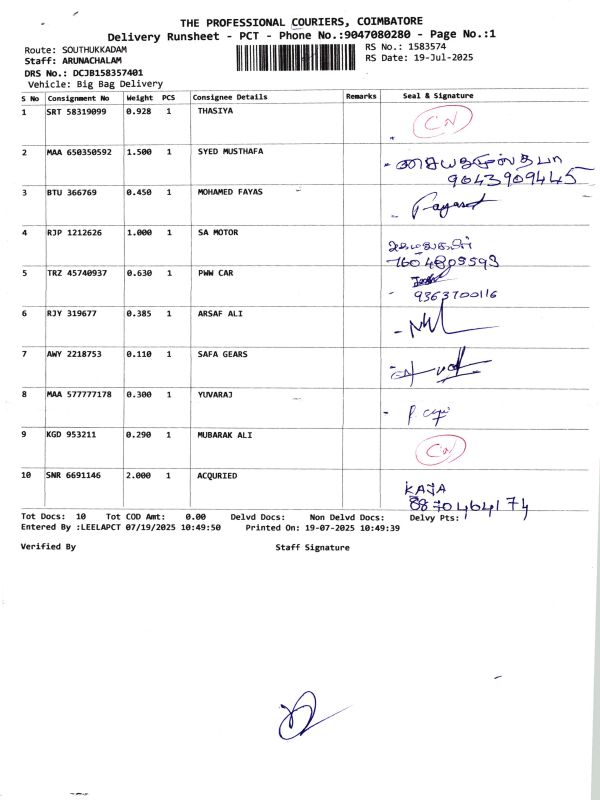 THE PROFESSIONAL COURIERS, COIMBATORE
Delivery Runsheet - PCT - Phone No.:9047080280 - Page No.:1
Route: SOUTHUKKADAM
RS No.: 1583574
Staff: ARUNACHALAM
RS Date: 19-Jul-2025
DRS No.: DCJB158357401
Vehicle: Big Bag Delivery
S No Consignment No Weight PCS Consignee Details Remarks Seal & Signature
1 SRT 58319099 0.928 1 THASIYA CN
2 MAA 650350592 1.500 1 SYED MUSTHAFA
9043909445
3 BTU 366769 0.450 1 MOHAMED FAYAS
4 RJP 1212626 1.000 1 SA MOTOR
7604808593
5 TRZ 45740937 0.630 1 PWW CAR
9363700116
6 RJY 319677 0.385 1 ARSAF ALI
7 AWY 2218753 0.110 1 SAFA GEARS
8 MAA 577777178 0.300 1 YUVARAJ
9 KGD 953211 0.290 1 MUBARAK ALI CN
10 SNR 6691146 2.000 1 ACQURIED KAJA
8870464174
Tot Docs: 10 Tot COD Amt: 0.00 Delvd Docs: Non Delvd Docs: Delvy Pts:
Entered By :LEELAPCT 07/19/2025 10:49:50 Printed On: 19-07-2025 10:49:39
Verified By Staff Signature